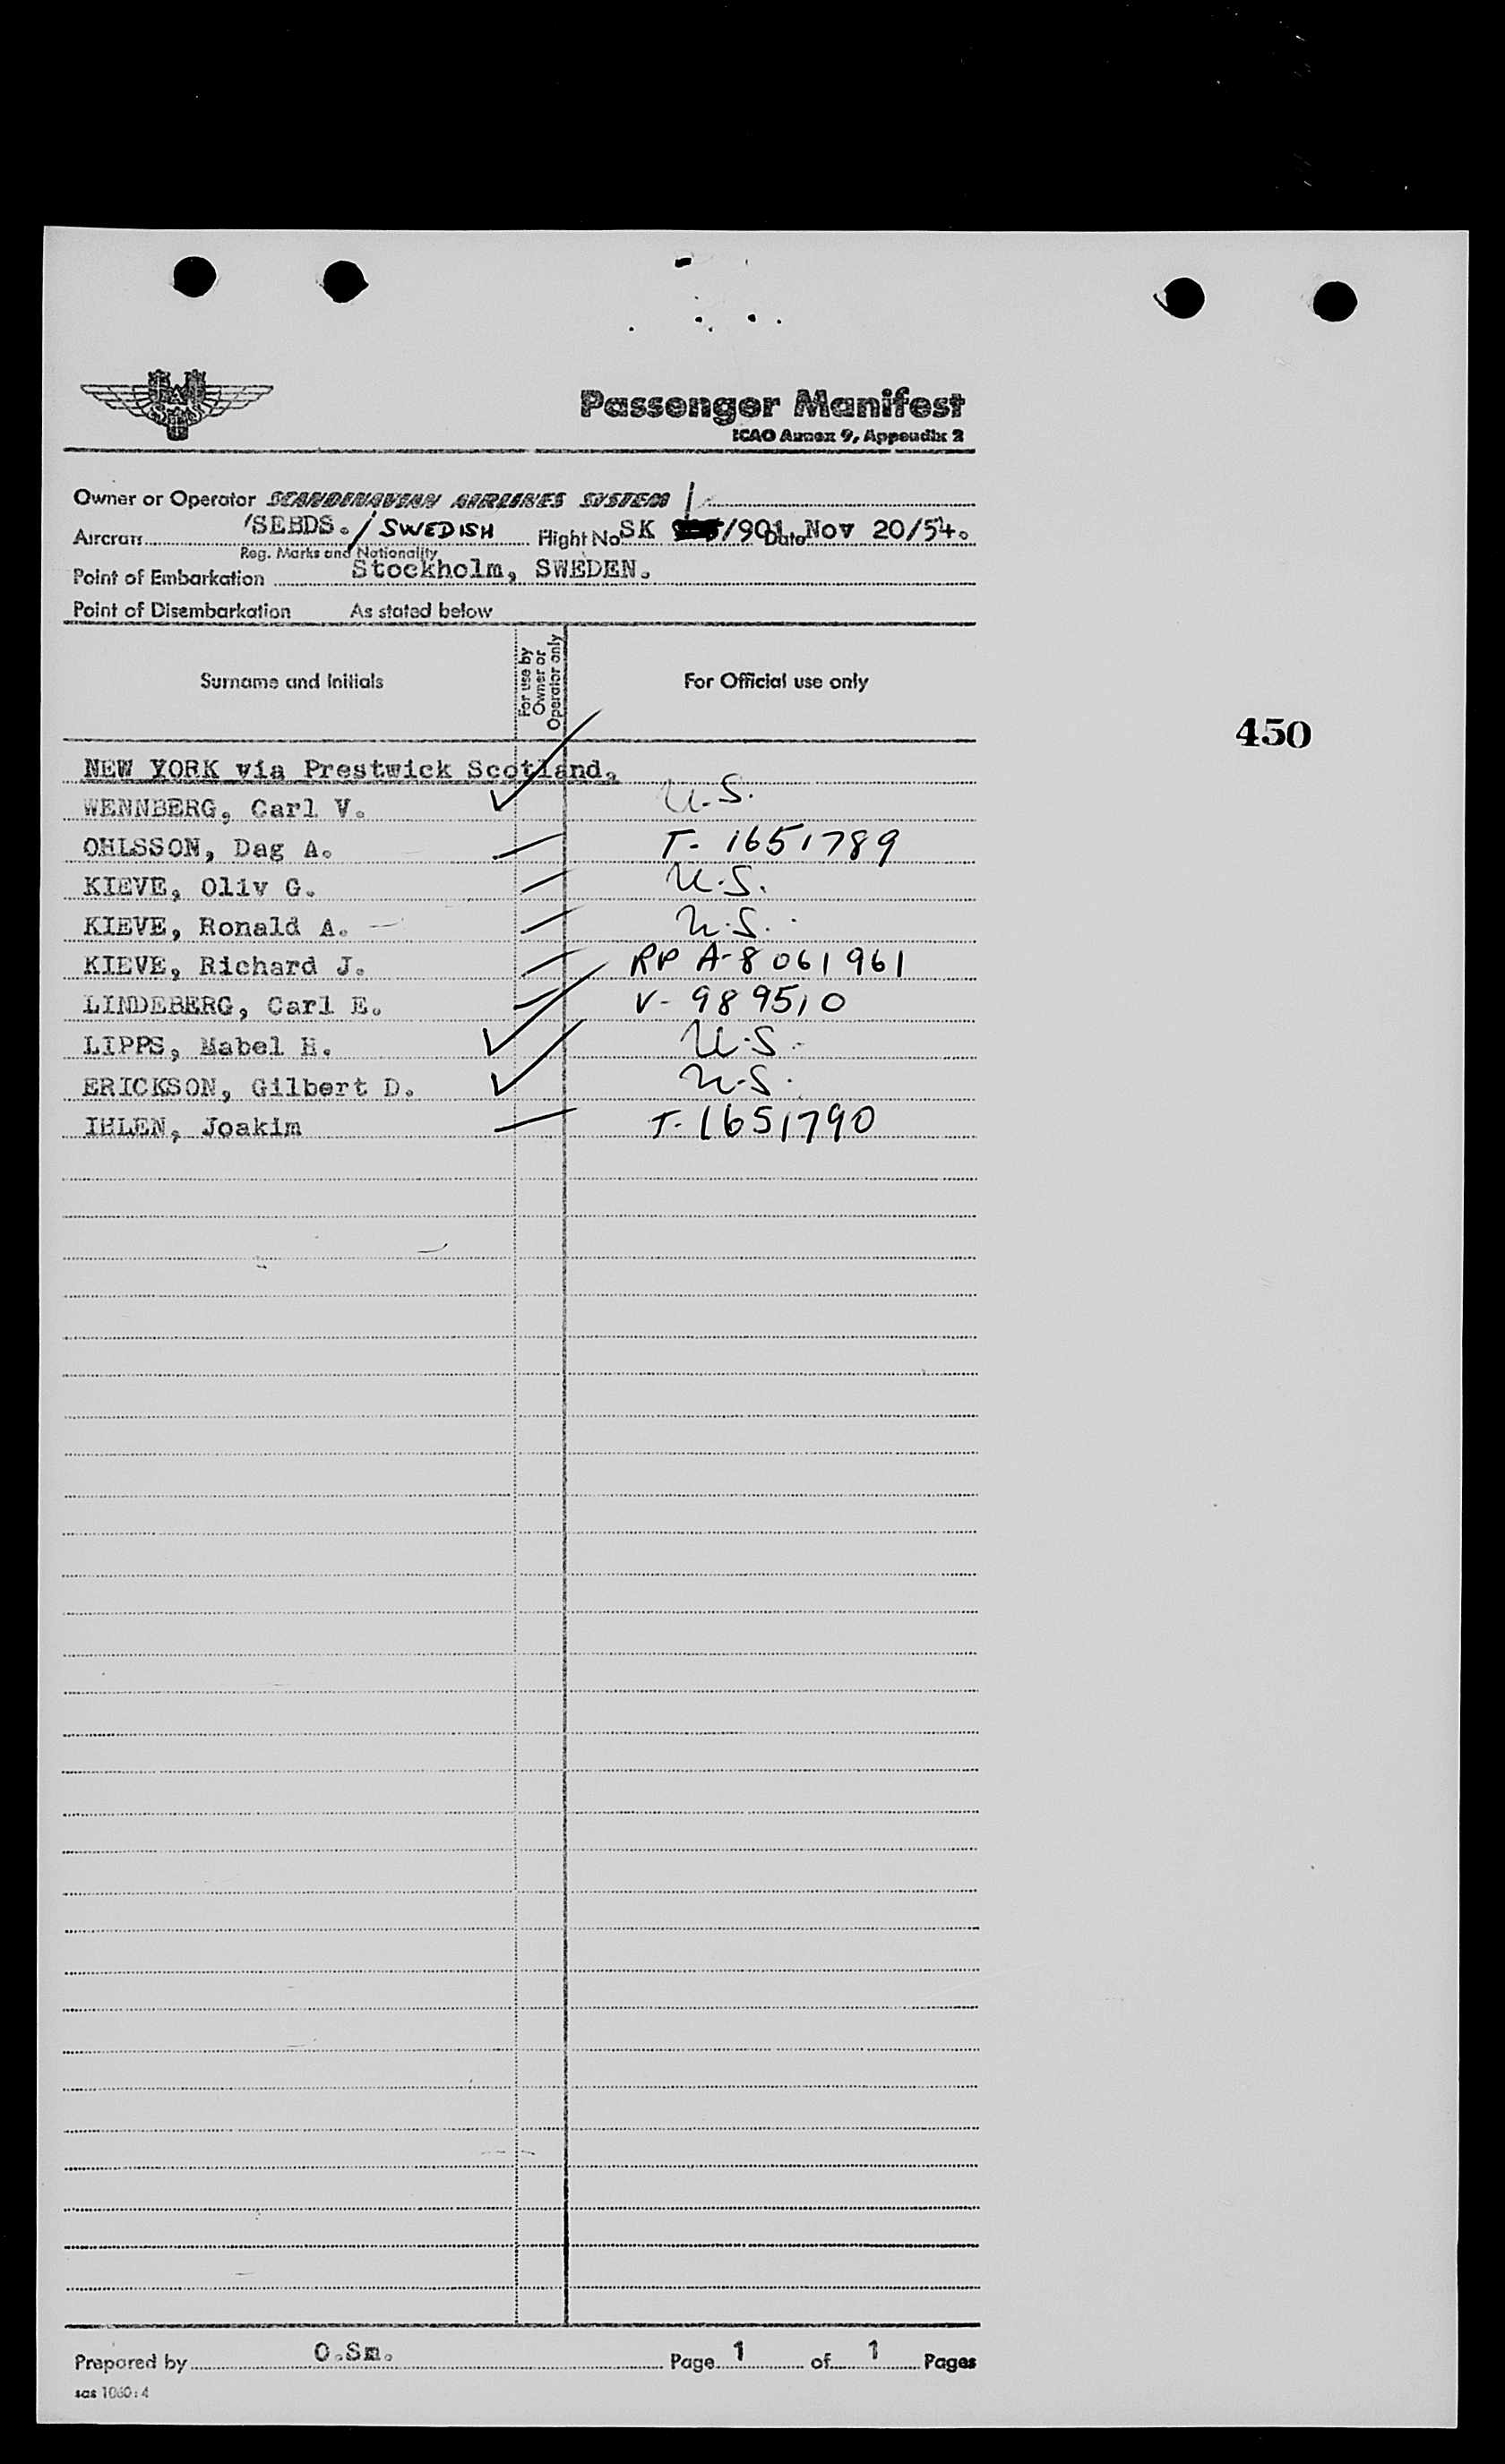 SAS
Passenger Manifest
ICAO Annex 9, Appendix 2
Owner or Operator SCANDINAVIAN AIRLINES SYSTEM /
Aircraft 'SEBDS. / SWEDISH Flight No SK /901 Date Nov 20/54.
Reg. Marks and Nationality
Point of Embarkation Stockholm, SWEDEN.
Point of Disembarkation As stated below
Surname and Initials For use by Owner or Operator only For Official use only
450
NEW YORK via Prestwick Scotland,
WENNBERG, Carl V. U.S.
OHLSSON, Dag A. T- 1651789
KIEVE, Oliv G. U.S.
KIEVE, Ronald A. U.S.
KIEVE, Richard J. RP A-8061961
LINDEBERG, Carl E. V- 989510
LIPPS, Mabel H. U.S.
ERICKSON, Gilbert D. U.S.
IHLEN, Joakim T-1651790
Prepared by O.Sm. Page 1 of 1 Pages
sas 1060:4